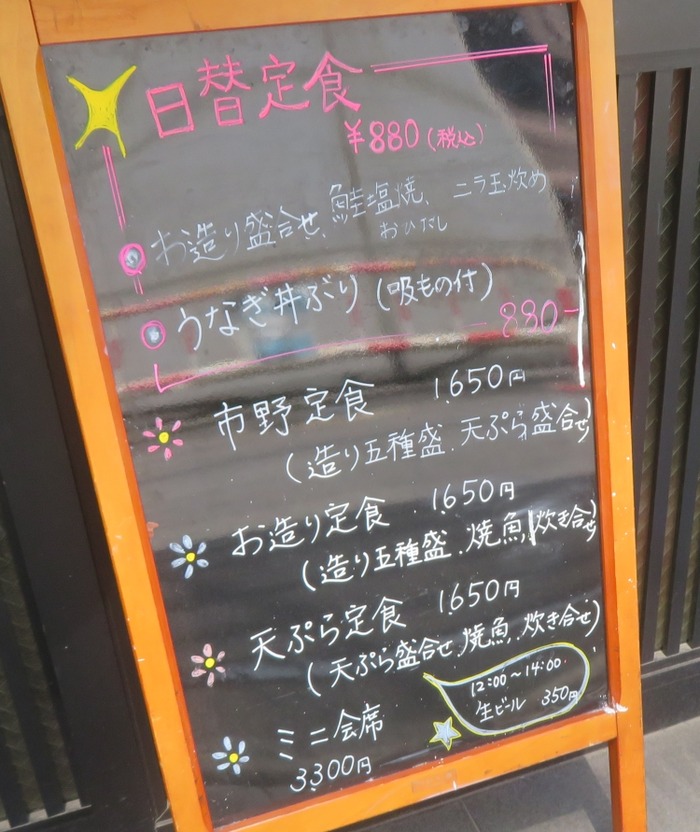 日替定食
¥880(税込)
お造り盛合せ、鮭塩焼、ニラ玉炒め
おひたし
うなぎ丼ぶり(吸もの付)
880-
市野定食 1,650円
(造り五種盛、天ぷら盛合せ)
お造り定食 1,650円
(造り五種盛、焼魚、炊き合せ)
天ぷら定食 1,650円
(天ぷら盛合せ、焼魚、炊き合せ)
ミニ会席
3,300円
12:00~14:00
生ビール 350円